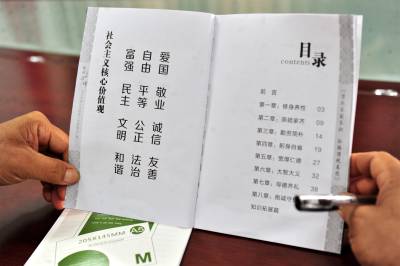 社会主义核心价值观
富强 民主 文明 和谐
自由 平等 公正 法治
爱国 敬业 诚信 友善
目录
contents
前言
第一章：修身养性 03
第二章： 09
第三章：勤劳简朴
第四章：躬身自省 22
第五章：宽厚仁德 27
第六章：大智大义 32
第七章：尊德养礼 38
第八章：
知识拓展篇
205X145MM
A5
M